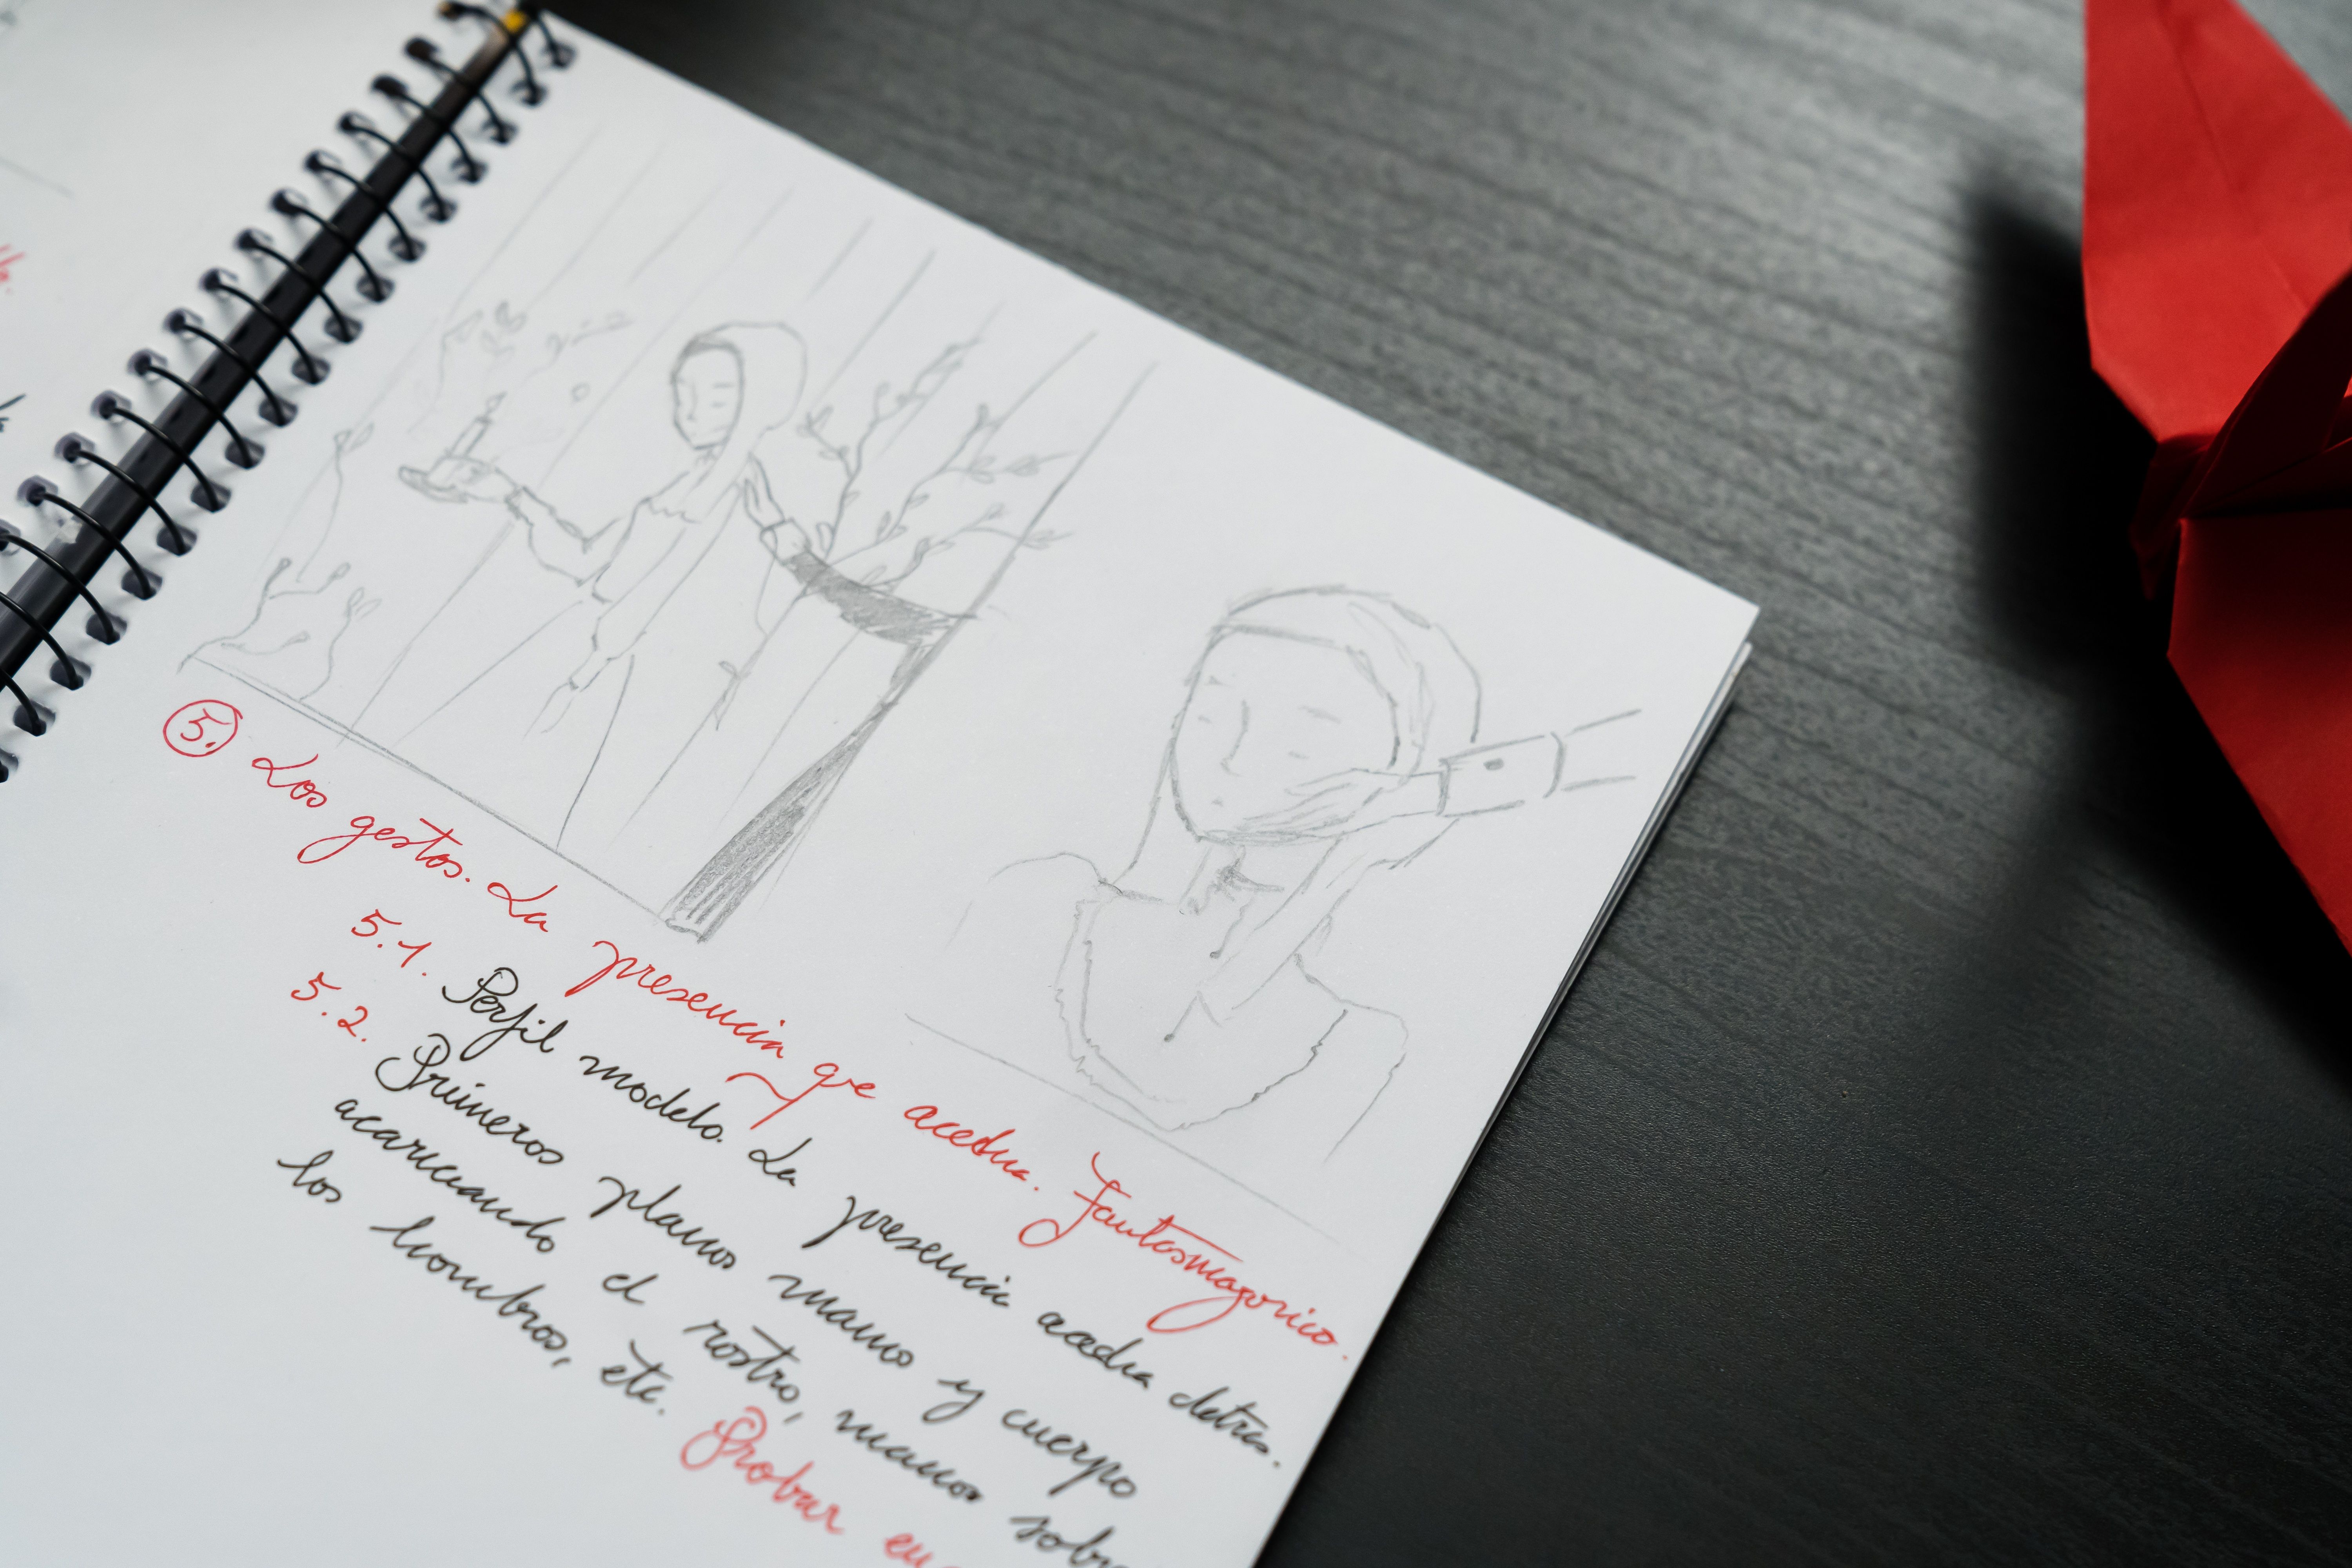 5. Los gestos. La presencia que acecha. Fantasmagorico.
5.1. Perfil modelo. La presencia acecha detras.
5.2. Primeros planos mano y cuerpo
acariciando el rostro, manos sobre
los hombros, etc. Probar en